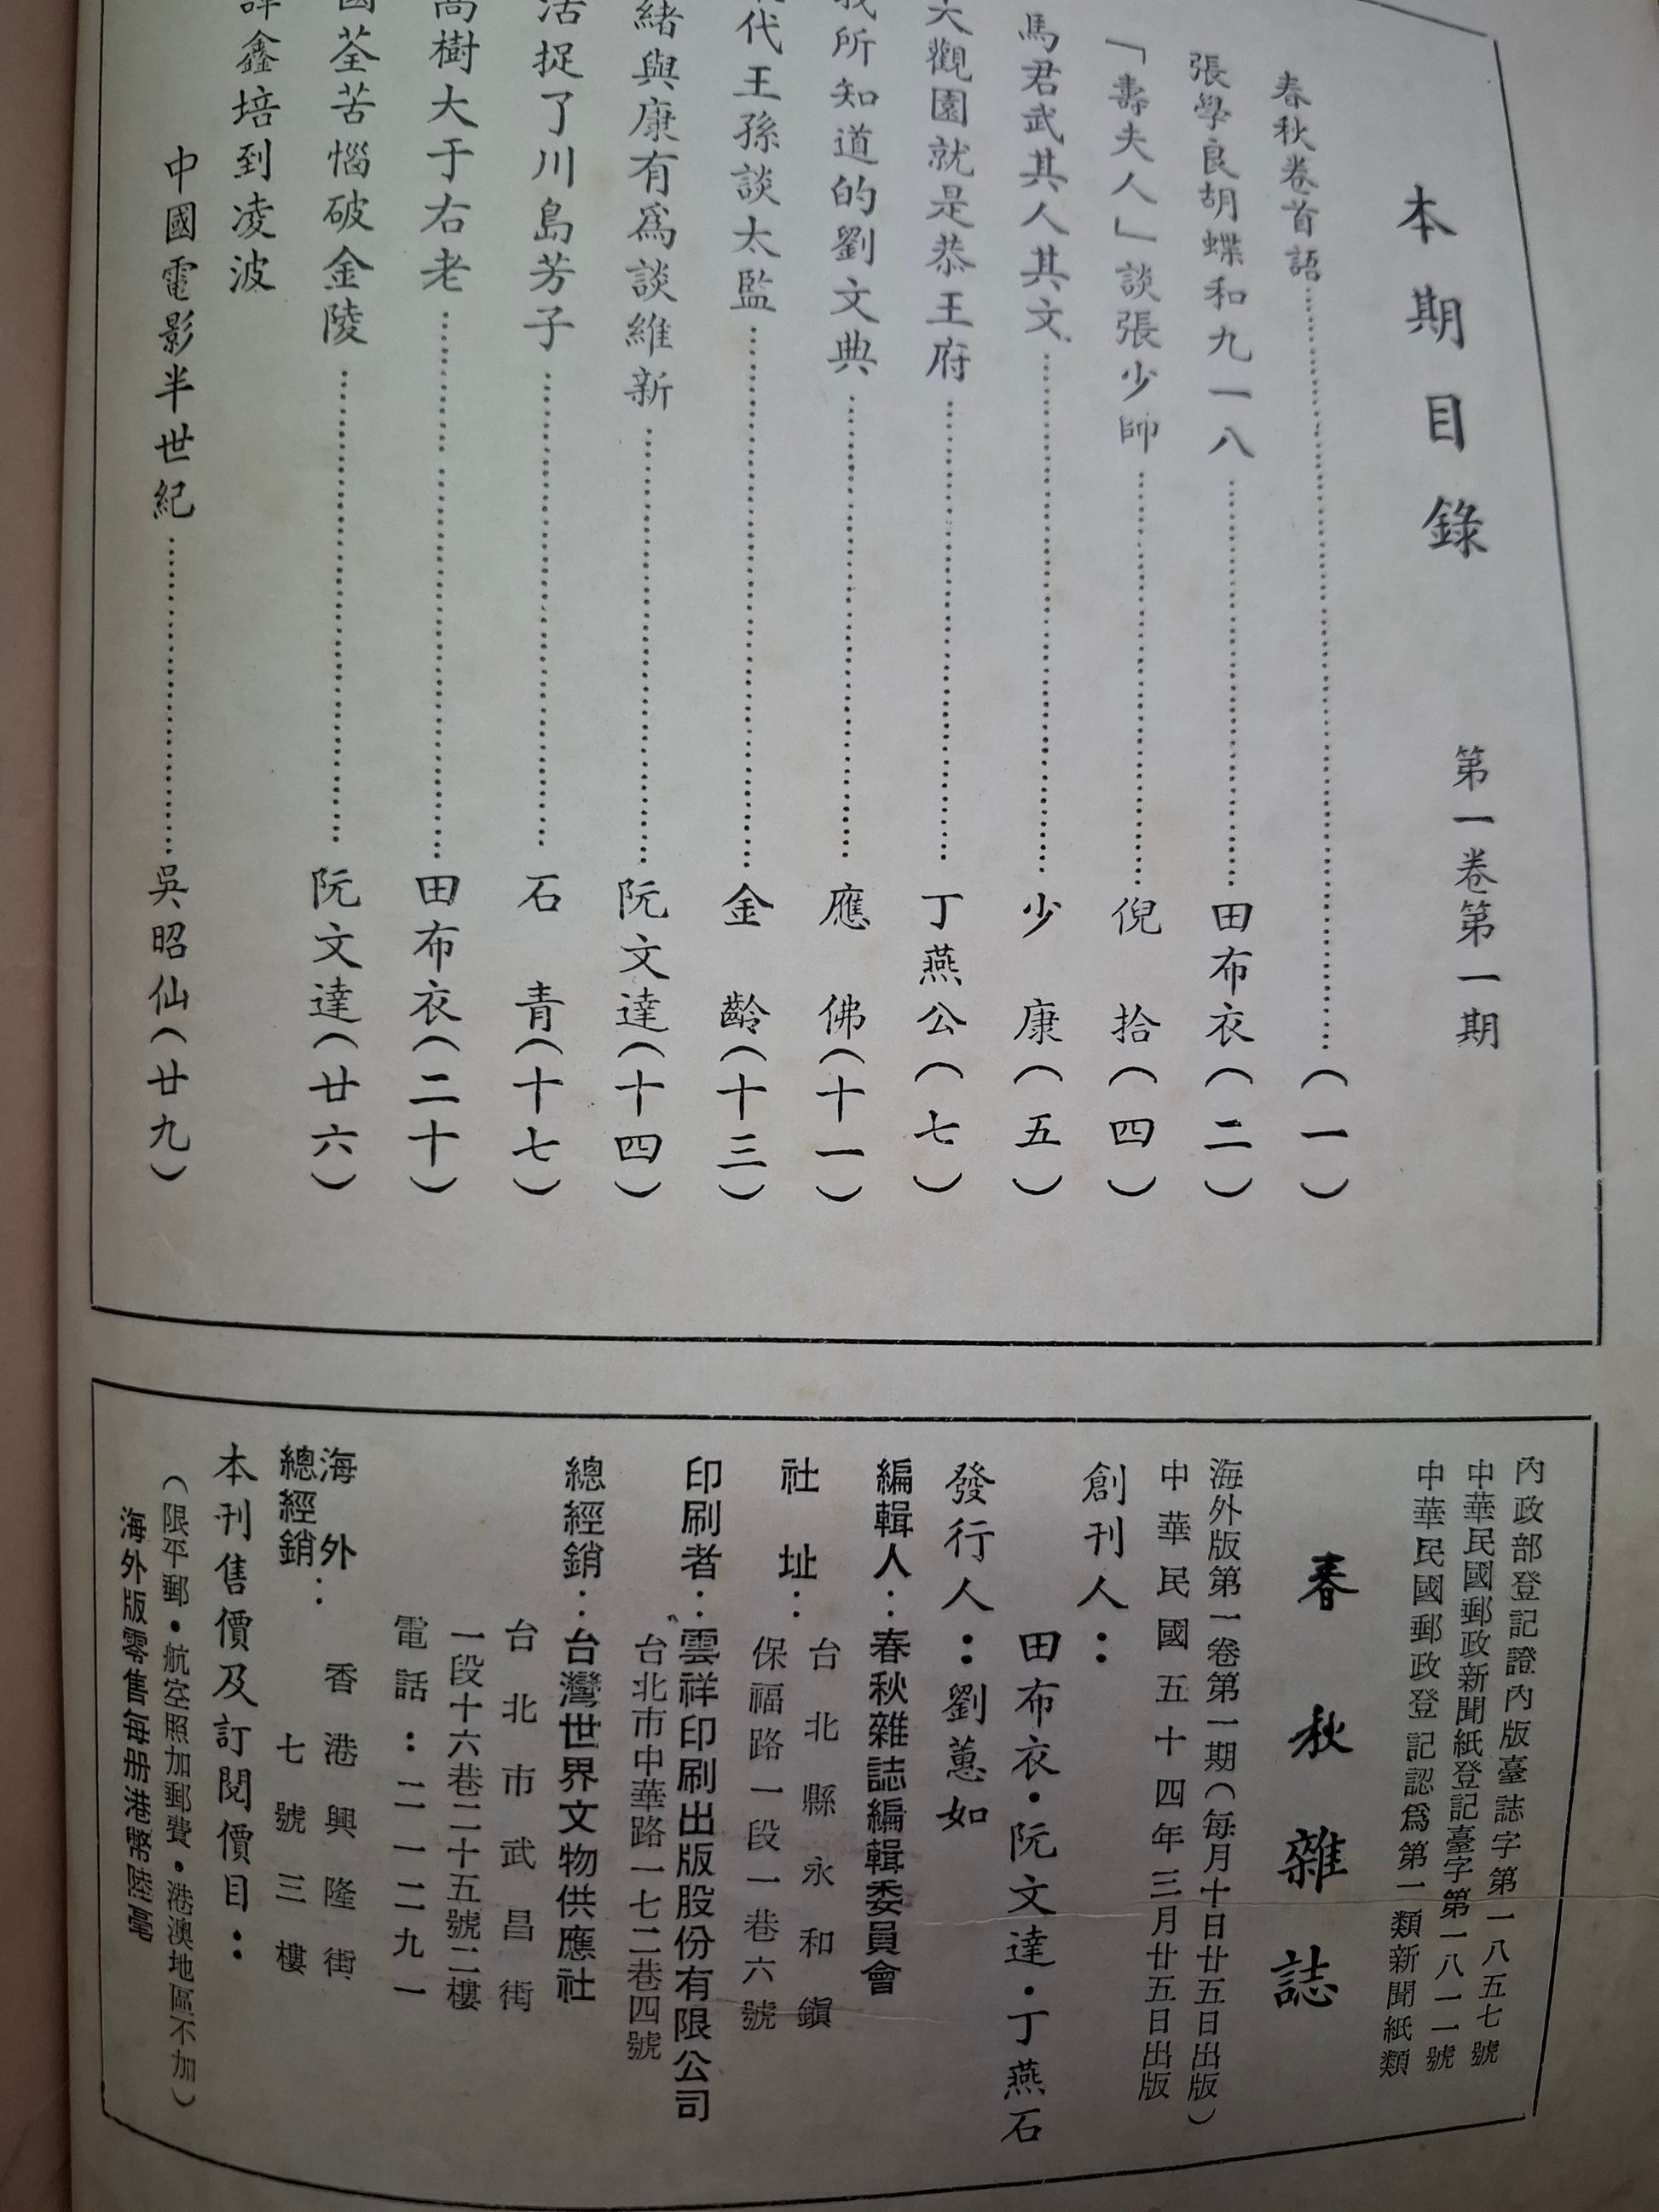 本期目錄
第一卷第一期
春秋卷首語（一）
張學良胡蝶和九一八 田布衣（二）
「壽夫人」談張少帥 倪拾（四）
馬君武其人其文 少康（五）
大觀園就是恭王府 丁燕公（七）
我所知道的劉文典 應佛（十一）
代王孫談太監 金齡（十三）
緒與康有爲談維新 阮文達（十四）
活捉了川島芳子 石青（十七）
高樹大于右老 田布衣（二十）
國荃苦惱破金陵 阮文達（廿六）
鑫培到凌波
中國電影半世紀 吳昭仙（廿九）
內政部登記證內版臺誌字第一八五七號
中華民國郵政新聞紙登記臺字第一八一一號
中華民國郵政登記認爲第一類新聞紙類
春秋雜誌
海外版第一卷第一期（每月十日廿五日出版）
中華民國五十四年三月廿五日出版
創刊人：
田布衣•阮文達•丁燕石
發行人：劉蕙如
編輯人：春秋雜誌編輯委員會
社址：台北縣永和鎮
保福路一段一巷六號
印刷者：雲祥印刷出版股份有限公司
台北市中華路一七二巷四號
總經銷：台灣世界文物供應社
台北市武昌街
一段十六巷二十五號二樓
電話：二一二九一
海外總經銷：香港興隆街
七號三樓
本刊售價及訂閱價目：
（限平郵•航空照加郵費•港澳地區不加）
海外版零售每册港幣陸毫